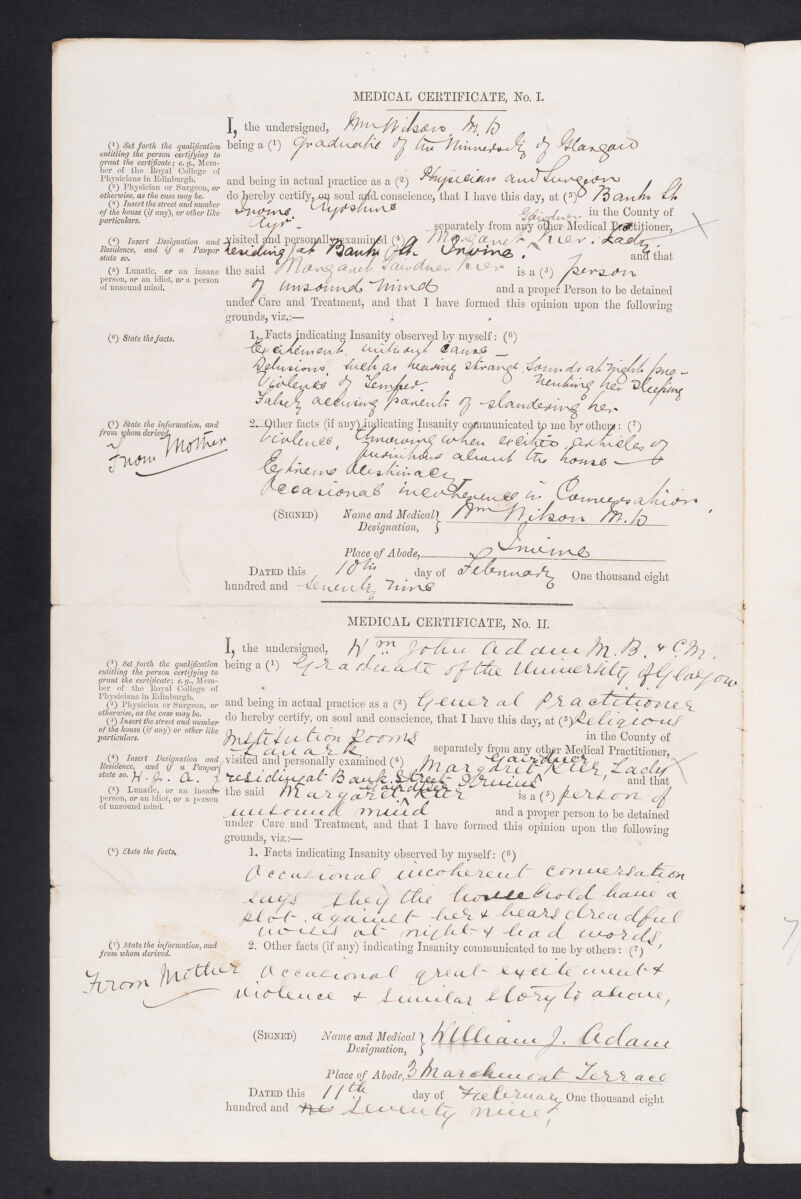 MEDICAL CERTIFICATE, No. I.
I, the undersigned, Wm Wilson M.D
(¹) Set forth the qualification
entitling the person certifying to
grant the certificate; e. g., Mem-
ber of the Royal College of
Physicians in Edinburgh.
being a (¹) Graduate of the University of Glasgow
(²) Physician or Surgeon, or
otherwise, as the case may be.
and being in actual practice as a (²) Physician and Surgeon
(³) Insert the street and number
of the house (if any), or other like
particulars.
do hereby certify, on soul and conscience, that I have this day, at (³) Bank St
Irvine Ayrshire in the County of
Ayr- separately from any other Medical Practitioner,
(⁴) Insert Designation and
Residence, and if a Pauper
state so.
visited and personally examined (⁴) Margaret Gairdner Kier. Lady.
residing at Bank St. Irvine. and that
(⁵) Lunatic, or an insane
person, or an idiot, or a person
of unsound mind.
the said Margaret Gairdner Kier is a (⁵) person
of unsound mind and a proper Person to be detained
under Care and Treatment, and that I have formed this opinion upon the following
grounds, viz.:—
(⁶) State the facts.
1. Facts indicating Insanity observed by myself: (⁶)
Excitement without cause—
Delusions, such as hearing strange sounds at night pre-
Violence of Temper. venting her sleeping
Falsely accusing parents of slandering her
(⁷) State the information, and
from whom derived.
From Mother
2. Other facts (if any) indicating Insanity communicated to me by others: (⁷)
Violence, throwing when excited articles of
furniture about the house—
Extreme obstinacy
Occasional incoherence in Conversation,
(SIGNED) Name and Medical Designation, } Wm Wilson M.D
Place of Abode, Irvine
DATED this 10th day of February One thousand eight
hundred and Seventy nine
MEDICAL CERTIFICATE, No. II.
I, the undersigned, Wm John Adam M.B. & C.M.
(¹) Set forth the qualification
entitling the person certifying to
grant the certificate; e. g., Mem-
ber of the Royal College of
Physicians in Edinburgh.
being a (¹) Graduate of the University of Glasgow
(²) Physician or Surgeon, or
otherwise, as the case may be.
and being in actual practice as a (²) General Practitioner
(³) Insert the street and number
of the house (if any) or other like
particulars.
do hereby certify, on soul and conscience, that I have this day, at (³) Religious
Institution Rooms in the County of
Lanark separately from any other Medical Practitioner,
(⁴) Insert Designation and
Residence, and if a Pauper
state so. W. J. A.
visited and personally examined (⁴) Margaret Gairdner Kier, Lady
residing at Bank Street Irvine and that
(⁵) Lunatic, or an insane
person, or an idiot, or a person
of unsound mind.
the said Margaret Gairdner Kier is a (⁵) person of
unsound mind and a proper person to be detained
under Care and Treatment, and that I have formed this opinion upon the following
grounds, viz.:—
(⁶) State the facts.
1. Facts indicating Insanity observed by myself: (⁶)
Occasional incoherent conversation
says they the household have a
plot against her & hears dreadful
noises at night & bad words,
(⁷) State the information, and
from whom derived.
From Mother
2. Other facts (if any) indicating Insanity communicated to me by others: (⁷)
Occasional great excitement &
violence & similar story to above,
(SIGNED) Name and Medical Designation, } William J. Adam
Place of Abode, 3 Marchmont Terrace
DATED this 11th day of February One thousand eight
hundred and Seventy nine,